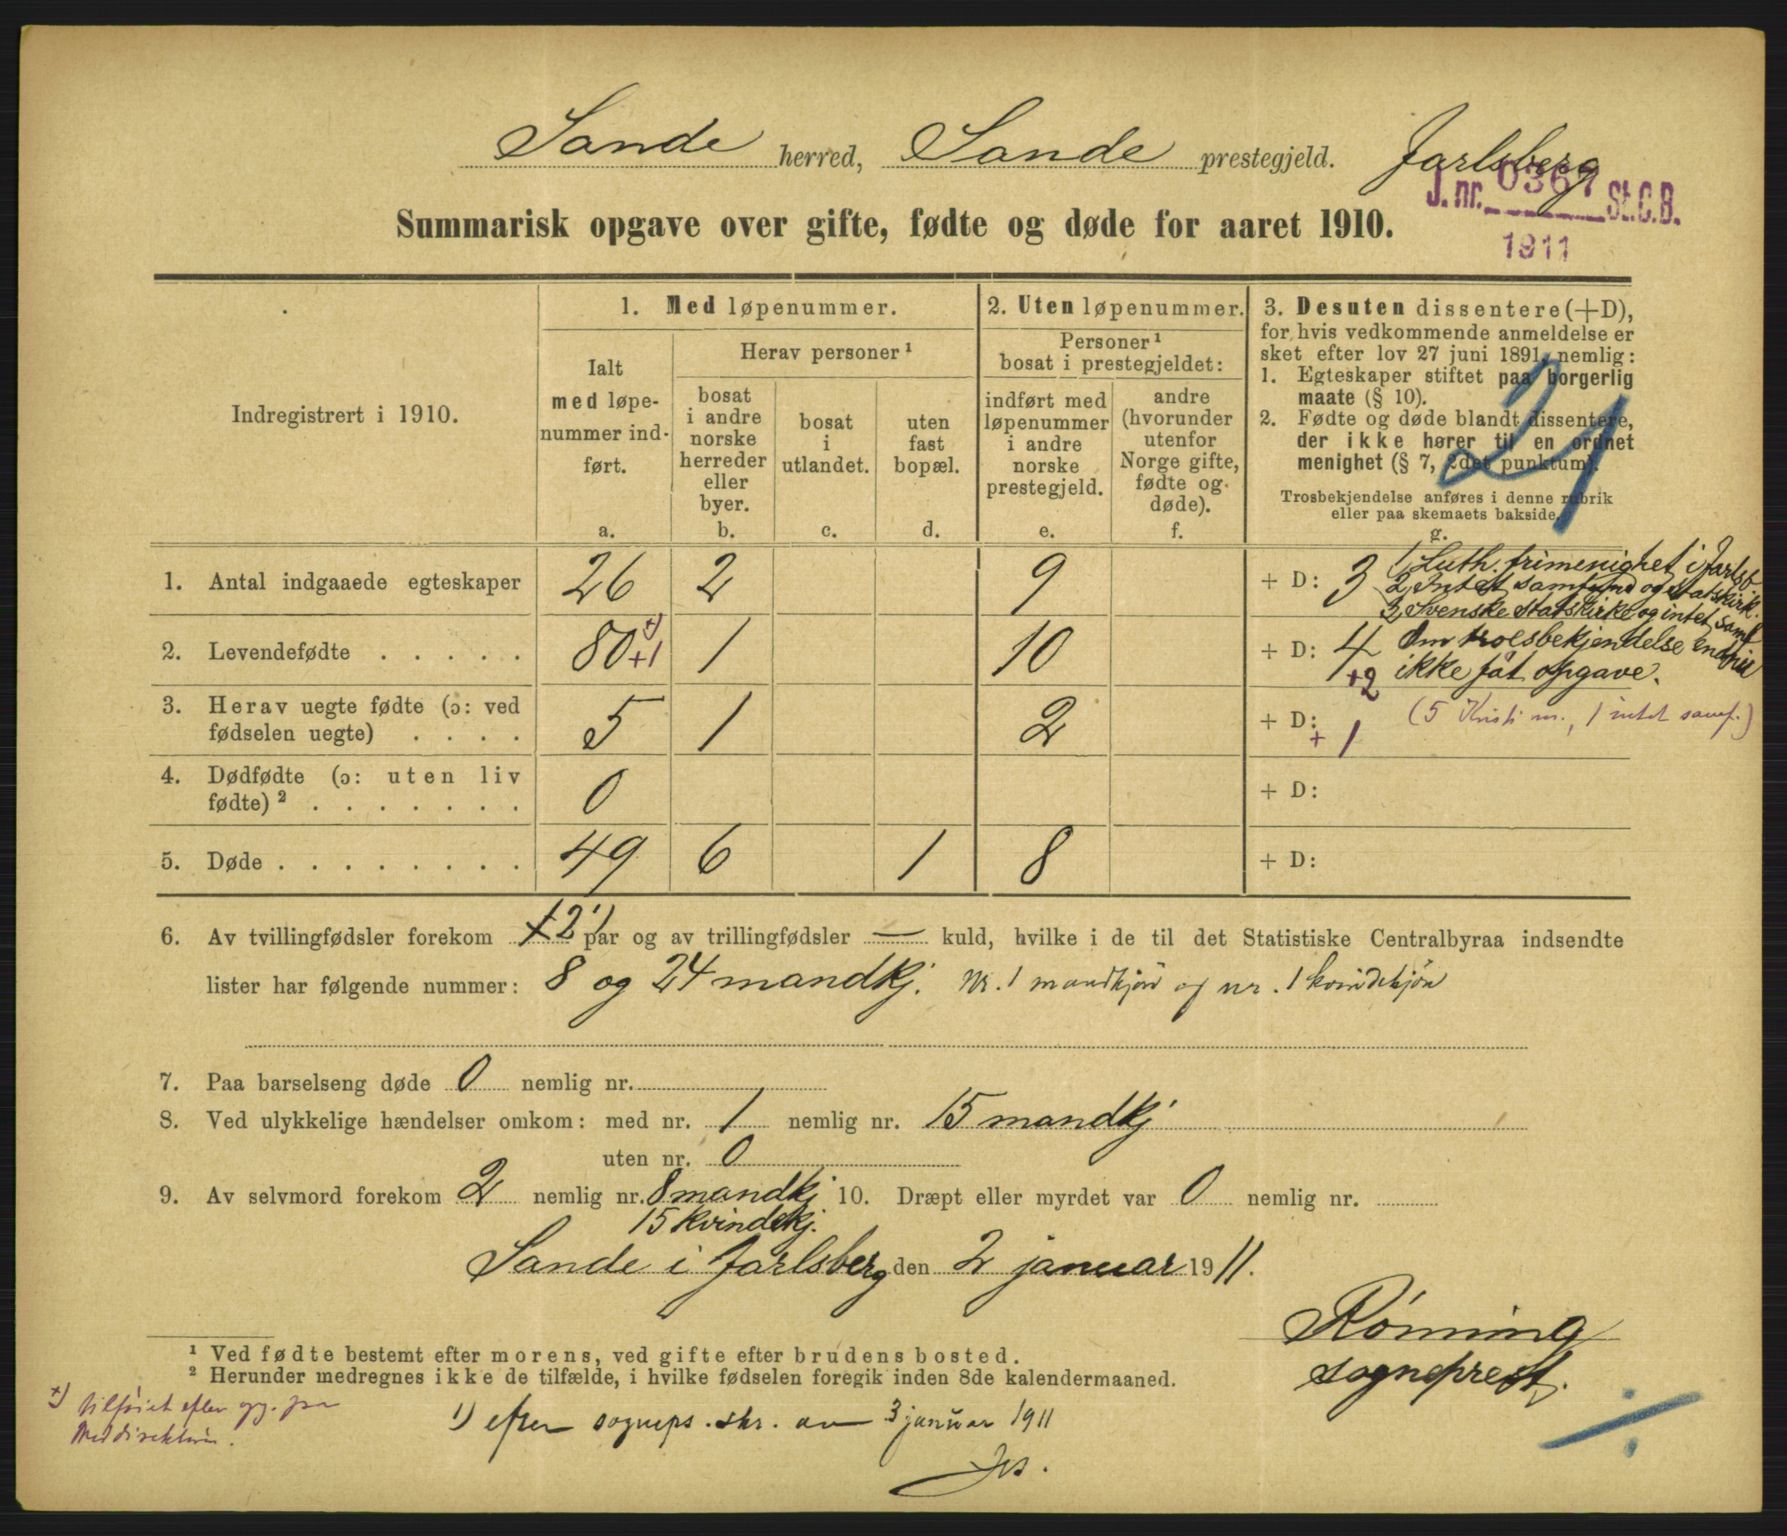 Sande herred, Sande prestegjeld. Jarlsberg
J. nr. 0367 St.C.B.
1911
Summarisk opgave over gifte, fødte og døde for aaret 1910.
Indregistrert i 1910.
1. Med løpenummer.
Ialt
med løpe-
nummer ind-
ført.
a.
Herav personer ¹
bosat
i andre
norske
herreder
eller
byer.
b.
bosat
i
utlandet.
c.
uten
fast
bopæl.
d.
2. Uten løpenummer.
Personer ¹
bosat i prestegjeldet:
indført med
løpenummer
i andre
norske
prestegjeld.
e.
andre
(hvorunder
utenfor
Norge gifte,
fødte og
døde).
f.
3. Desuten dissentere (+D),
for hvis vedkommende anmeldelse er
sket efter lov 27 juni 1891, nemlig:
1. Egteskaper stiftet paa borgerlig
maate (§ 10).
2. Fødte og døde blandt dissentere,
der ikke hører til en ordnet
menighet (§ 7, 2det punktum).
Trosbekjendelse anføres i denne rubrik
eller paa skemaets bakside.
g.
21
1. Antal indgaaede egteskaper 26 2 9 + D: 3
1, Luth. frimenighet i Jarlsb.
2, Intet samfund og statskirk.
3, Svenske statskirke og intet samf.
2. Levendefødte . . . . . 80 +1 x) 1 10 + D: 4 +2
Om troesbekjendelse endnu
ikke fåt opgave.
3. Herav uegte fødte (ɔ: ved
fødselen uegte) . . . . 5 1 2 + D: + 1
(5 Kristi m., 1 intet samf.)
4. Dødfødte (ɔ: uten liv
fødte) ² . . . . . . . 0 + D:
5. Døde . . . . . . . . 49 6 1 8 + D:
6. Av tvillingfødsler forekom 1 2 ¹) par og av trillingfødsler — kuld, hvilke i de til det Statistiske Centralbyraa indsendte
lister har følgende nummer: 8 og 24 mandkj. Nr. 1 mandkjön og nr. 1 kvindekjön
7. Paa barselseng døde 0 nemlig nr.
8. Ved ulykkelige hændelser omkom: med nr. 1 nemlig nr. 15 mandkj
uten nr. 0
9. Av selvmord forekom 2 nemlig nr. 8 mandkj 10. Dræpt eller myrdet var 0 nemlig nr.
15 kvindekj.
Sande i Jarlsberg den 2 januar 1911.
Rönning
sogneprest.
¹ Ved fødte bestemt efter morens, ved gifte efter brudens bosted.
² Herunder medregnes ikke de tilfælde, i hvilke fødselen foregik inden 8de kalendermaaned.
x) tilföiet efter opg. fra
Meddirektören.
1) efter sogneps. skr. av 3 januar 1911